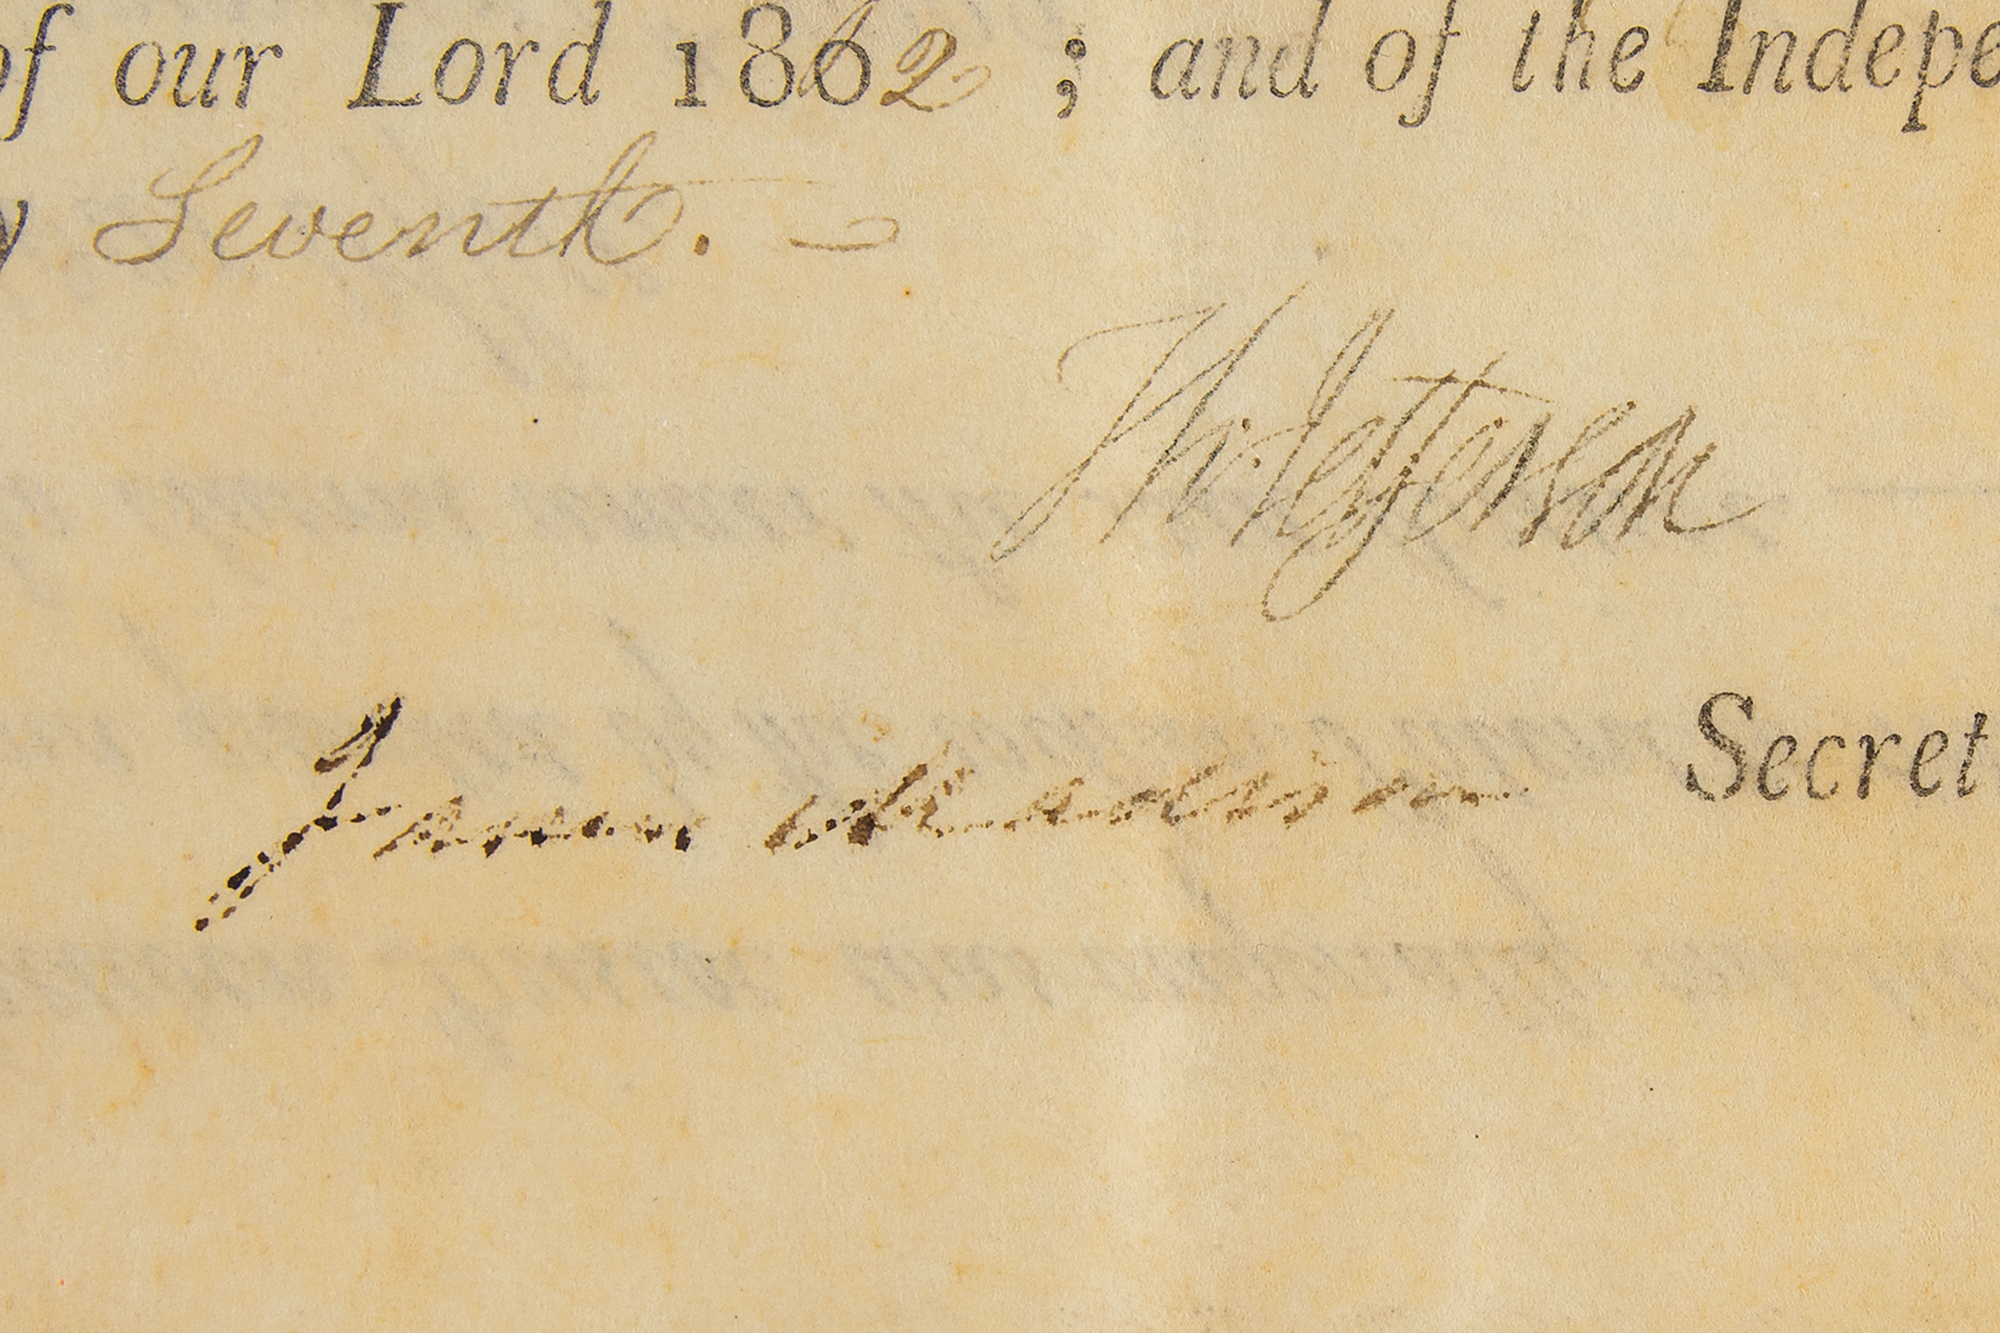 of our Lord 1862 ; and of the Indepe
y Seventh.
Th: Jefferson
James Madison Secret